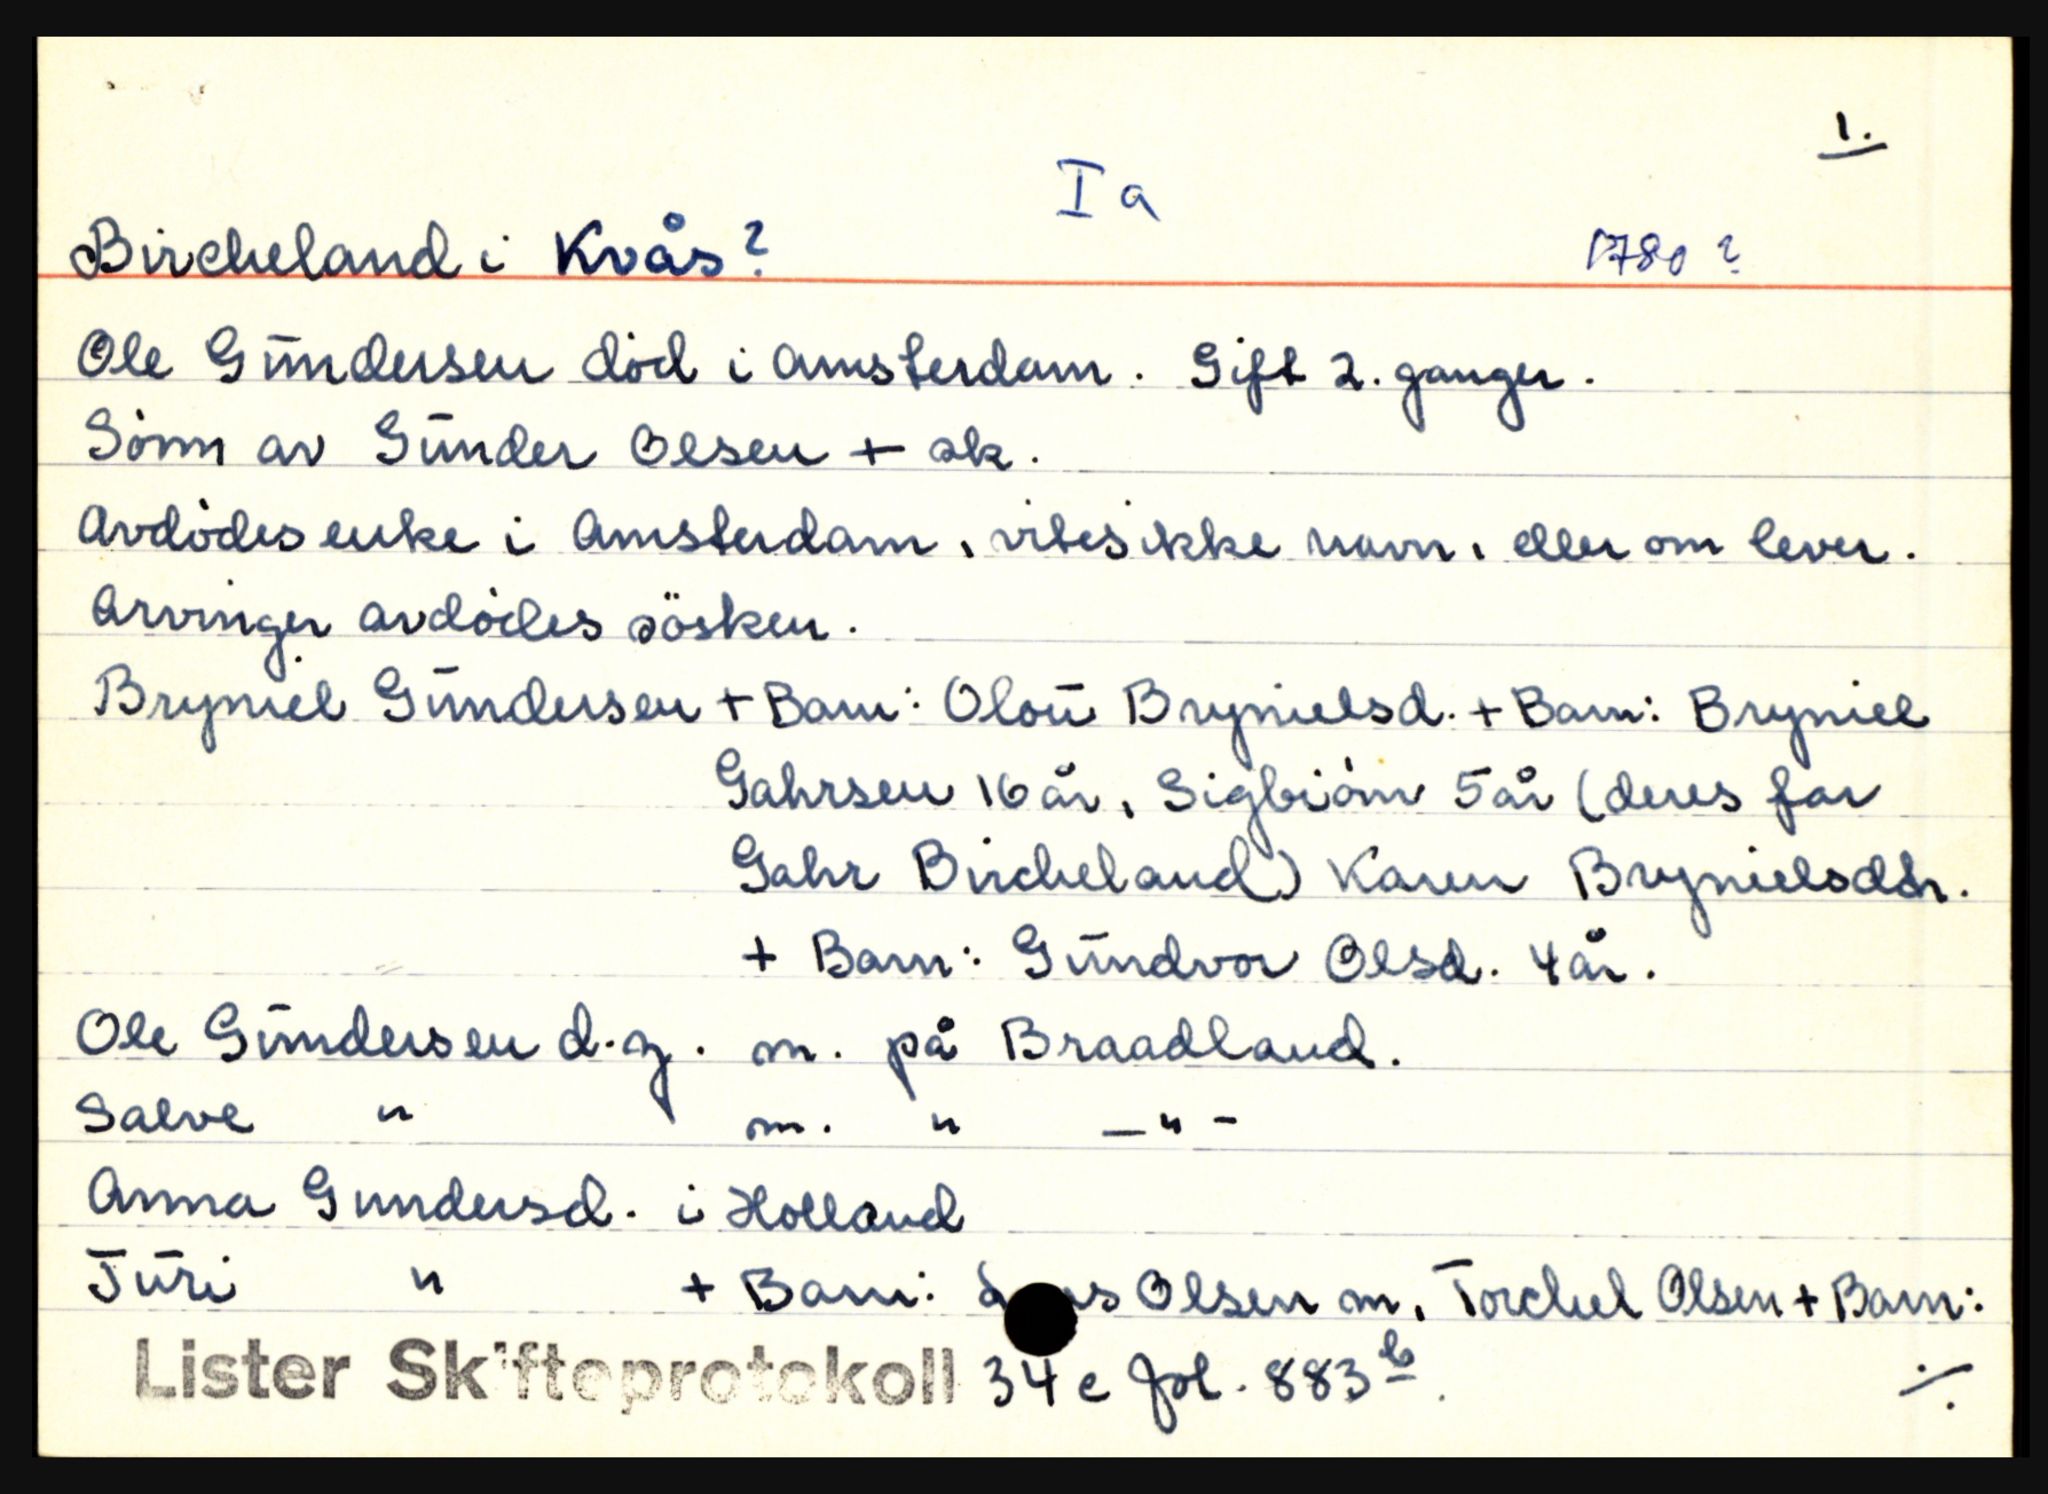 1.
I a
Bircheland i Kvås? 1780 ?
Ole Gūndersen död i Amsterdam. Gift 2. ganger.
Sönn av Gūnder Olsen + sk.
Avdödes enke i Amsterdam, vites ikke navn, eller om lever.
Arvinger avdödes sösken.
Bryniel Gūndersen + Barn: Oloū Brynielsd. + Barn: Bryniel
Gahrsen 16 år, Sigbiörn 5 år (deres far
Gahr Bircheland) Karen Brynielsdtr.
+ Barn: Gūndvor Olsd. 4 år.
Ole Gūndersen d.y. m. på Braadland.
Salve " m. " —"-
Anna Gundersd. i Holland
Jūri " + Barn: Olsen m, Torchel Olsen + Barn:
Lister Skifteprotokoll 34 c fol. 883 b.
./.